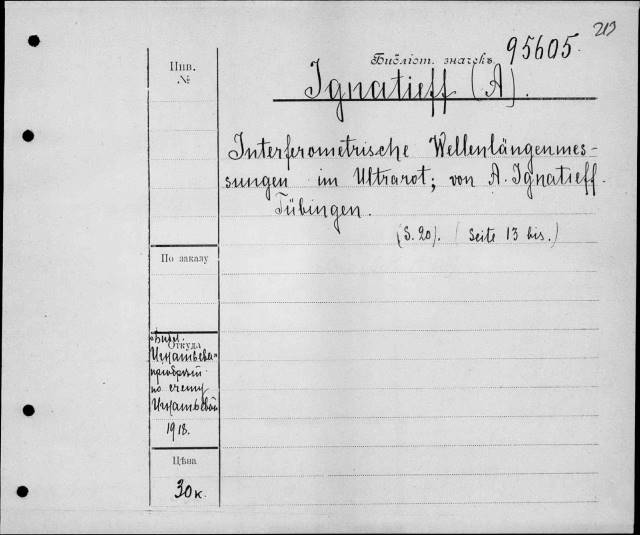 213
Инв.
№
Библіот. значекъ 95605.
Ignatieff (A).
Interferometrische Wellenlängenmes-
sungen im Ultrarot; von A. Ignatieff.
Tübingen.
(S. 20). (Seite 13 bis.)
По заказу
Откуда
„Библ.
Игнатьева"
по счету
Игнатьевой
1918.
Цѣна
30 к.